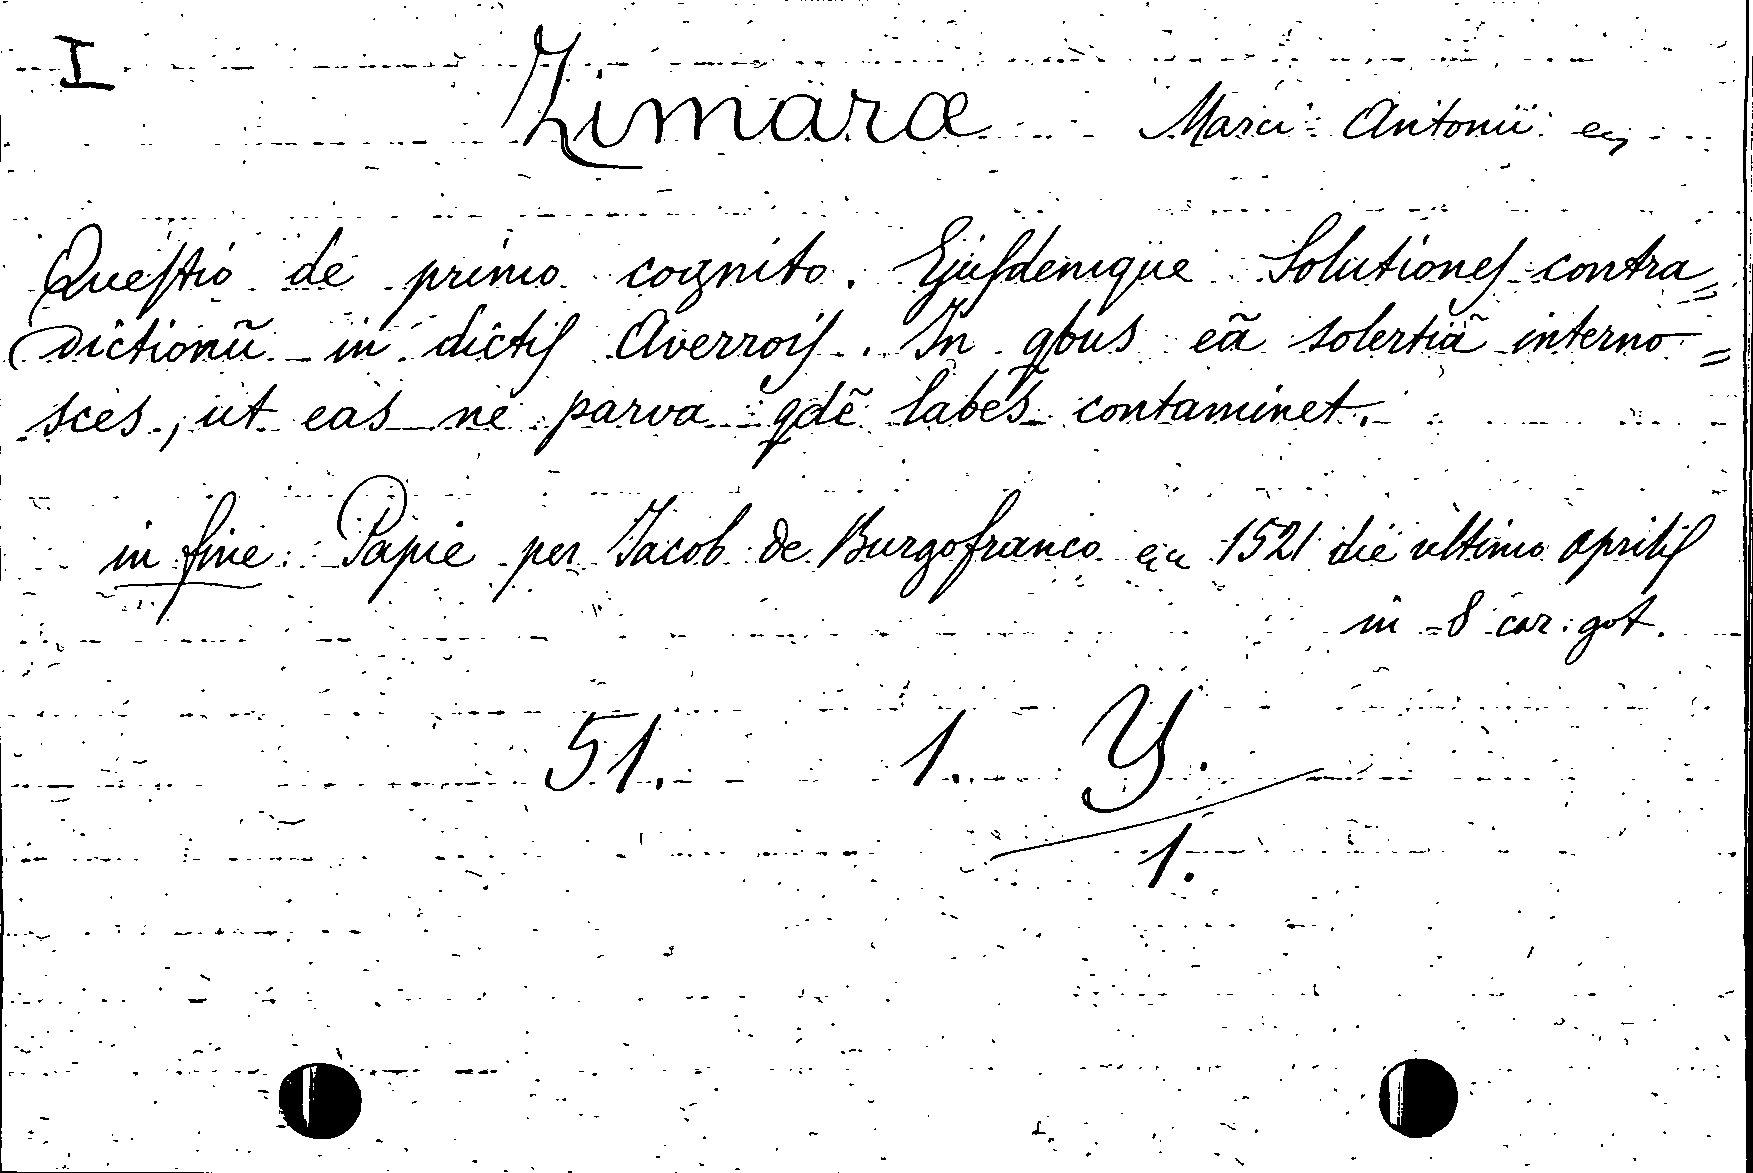 I
Zimaræ Marci Antonii
Queſtio de primo cognito. Ejuſdemque Solutioneſ contra=
dictionũ in dictiſ Averroiſ. In qbus eã solertiã interno=
sces, ut eas ne parva qdẽ labes contaminet.
in fine: Papie per Jacob de Burgofranco 1521 die ultimo apriliſ
in 8 car. got.
51. 1. Y.
1.